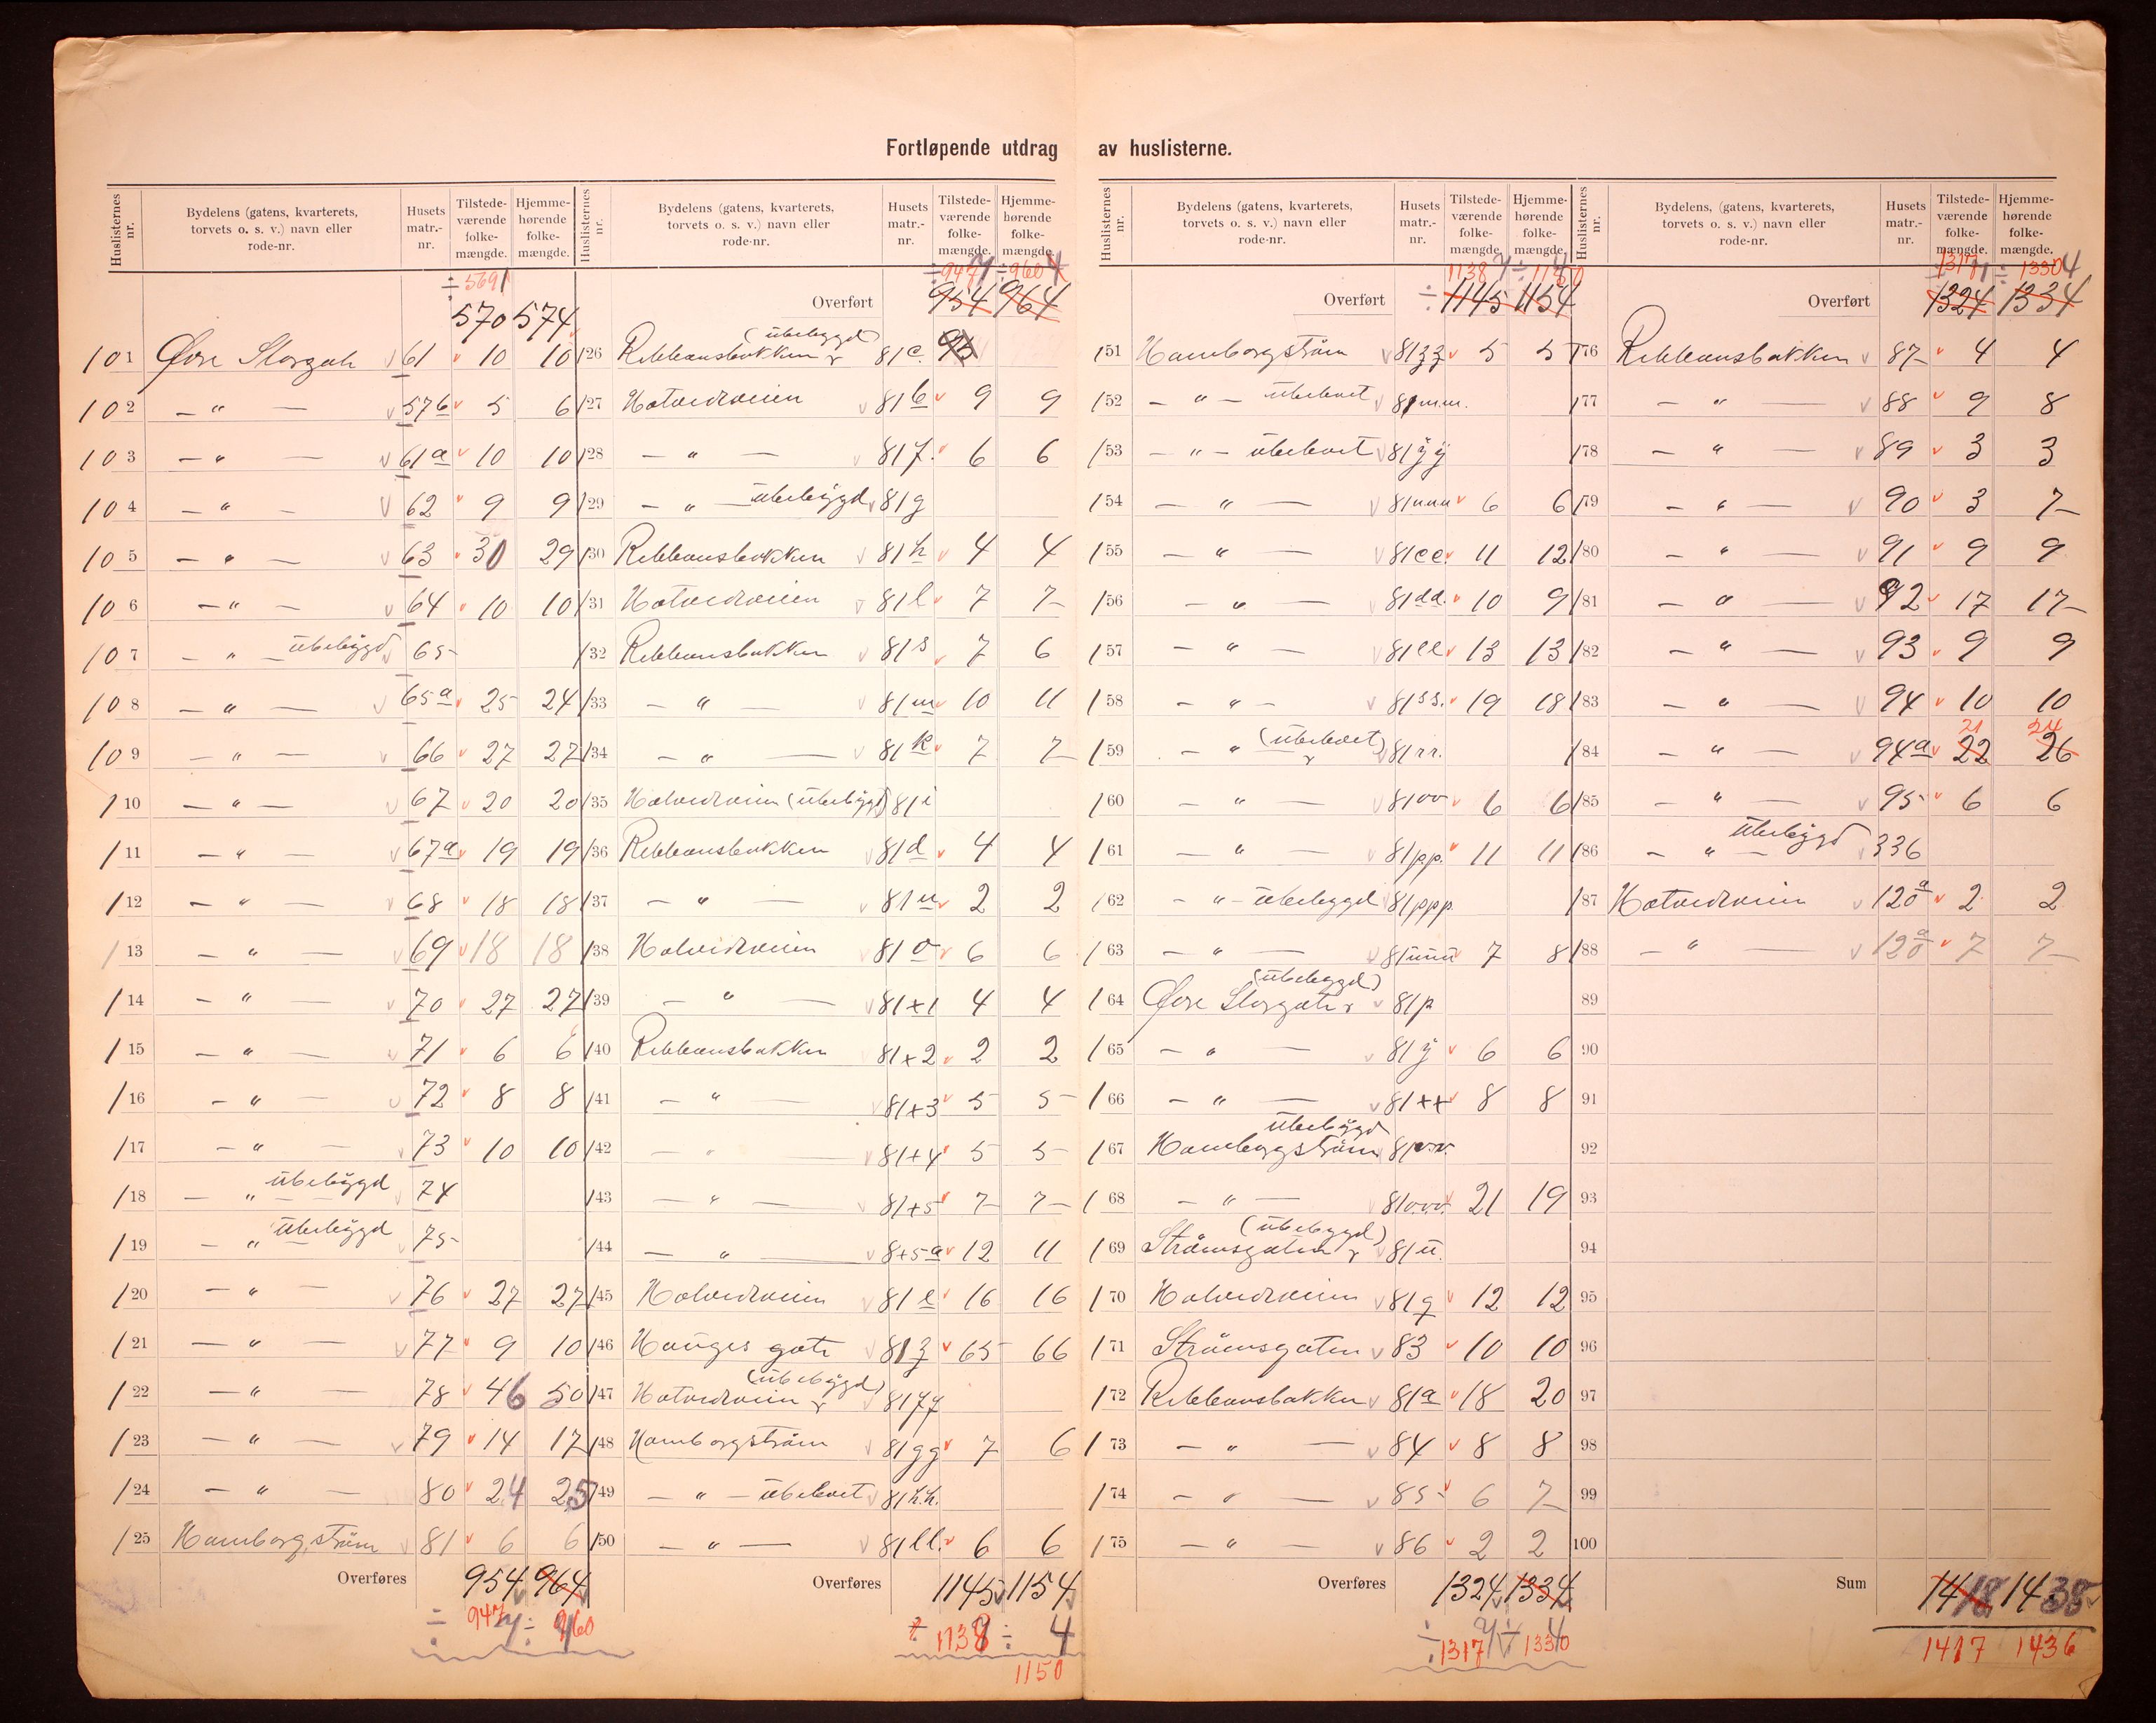 Fortløpende utdrag av huslisterne.
Huslisternes nr. | Bydelens (gatens, kvarterets, torvets o. s. v.) navn eller rode-nr. | Husets matr.-nr. | Tilstede-værende folke-mængde. | Hjemme-hørende folke-mængde.
÷ 569
570 574
101 Øvre Storgate 61 10 10
102 – " – 57b 5 6
103 – " – 61a 10 10
104 – " – 62 9 9
105 – " – 63 30 29
106 – " – 64 10 10
107 – " – Ubebygd 65
108 – " – 65a 25 24
109 – " – 66 27 27
110 – " – 67 20 20
111 – " – 67a 19 19
112 – " – 68 18 18
113 – " – 69 18 18
114 – " – 70 27 27
115 – " – 71 6 6
116 – " – 72 8 8
117 – " – 73 10 10
118 – " – Ubebygd 74
119 – " – Ubebygd 75
120 – " – 76 27 27
121 – " – 77 9 10
122 – " – 78 46 50
123 – " – 79 14 17
124 – " – 80 24 25
125 Hamborgstrøm 81 6 6
Overføres 954 964
÷ 947 ÷ 960
Huslisternes nr. | Bydelens (gatens, kvarterets, torvets o. s. v.) navn eller rode-nr. | Husets matr.-nr. | Tilstede-værende folke-mængde. | Hjemme-hørende folke-mængde.
÷ 947 ÷ 960
Overført 954 964
126 Ribbensbakken (Ubebygd) 81c.
127 Hotvedtveien 81b 9 9
128 – " – 81f. 6 6
129 – " – Ubebygd 81g
130 Ribbensbakken 81h 4 4
131 Hotvedtveien 81l 7 7
132 Ribbensbakken 81s 7 6
133 – " – 81m 10 11
134 – " – 81k 7 7
135 Hotvedtveien (Ubebygd) 81i
136 Ribbensbakken 81d 4 4
137 – " – 81n 2 2
138 Hotvedtveien 81o 6 6
139 – " – 81+1 4 4
140 Ribbensbakken 81+2 2 2
141 – " – 81+3 5 5
142 – " – 81+4 5 5
143 – " – 81+5 7 7
144 – " – 8+5a 12 11
145 Hotvedtveien 81e 16 16
146 Hauges gate 81z 65 66
147 Hotvedtveien (Ubebygd) 81ff
148 Hamborgstrøm 81gg 7 6
149 – " – Ubeboet 81h.h.
150 – " – 81ll. 6 6
Overføres 1145 1154
÷ 1138 ÷ 4
1150
Huslisternes nr. | Bydelens (gatens, kvarterets, torvets o. s. v.) navn eller rode-nr. | Husets matr.-nr. | Tilstede-værende folke-mængde. | Hjemme-hørende folke-mængde.
1138 ÷ 1150
Overført ÷ 1145 1154
151 Hamborgstrøm 81zz 5 5
152 – " – Ubeboet 81m.m.
153 – " – Ubeboet 81ÿÿ
154 – " – 81nnn 6 6
155 – " – 81ee. 11 12
156 – " – 81dd. 10 9
157 – " – 81ll 13 13
158 – " – 81ss. 19 18
159 – " – (Ubeboet) 81rr.
160 – " – 81oo 6 6
161 – " – 81pp. 11 11
162 – " – Ubebygd 81ppp.
163 – " – 81uuu 7 8
164 Øvre Storgate (Ubebygd) 81p
165 – " – 81ÿ 6 6
166 – " – 81++ 8 8
167 Hamborgstrøm Ubebygd 81v.v.
168 – " – 81ovv. 21 19
169 Strømsgaten (Ubebygd) 81u.
170 Hotvedtveien 81q 12 12
171 Strømsgaten 83 10 10
172 Ribbensbakken 81a 18 20
173 – " – 84 8 8
174 – " – 85 6 7
175 – " – 86 2 2
Overføres 1324 1334
÷ 1317 1330
Huslisternes nr. | Bydelens, (gatens, kvarterets, torvets o. s. v.) navn eller rode-nr. | Husets matr.-nr. | Tilstede-værende folke-mængde. | Hjemme-hørende folke-mængde.
1317 ÷ 1330
Overført 1324 1334
176 Ribbensbakken 87 4 4
177 – " – 88 9 8
178 – " – 89 3 3
179 – " – 90 3 7
180 – " – 91 9 9
181 – " – 92 17 17
182 – " – 93 9 9
183 – " – 94 10 10
21 24
184 – " – 94a 22 26
185 – " – 95 6 6
186 – " – Ubebygd 336
187 Hotvedtveien 120a 2 2
188 – " – 120a 7 7
89
90
91
92
93
94
95
96
97
98
99
100
Sum 1418 1438
1417 1436